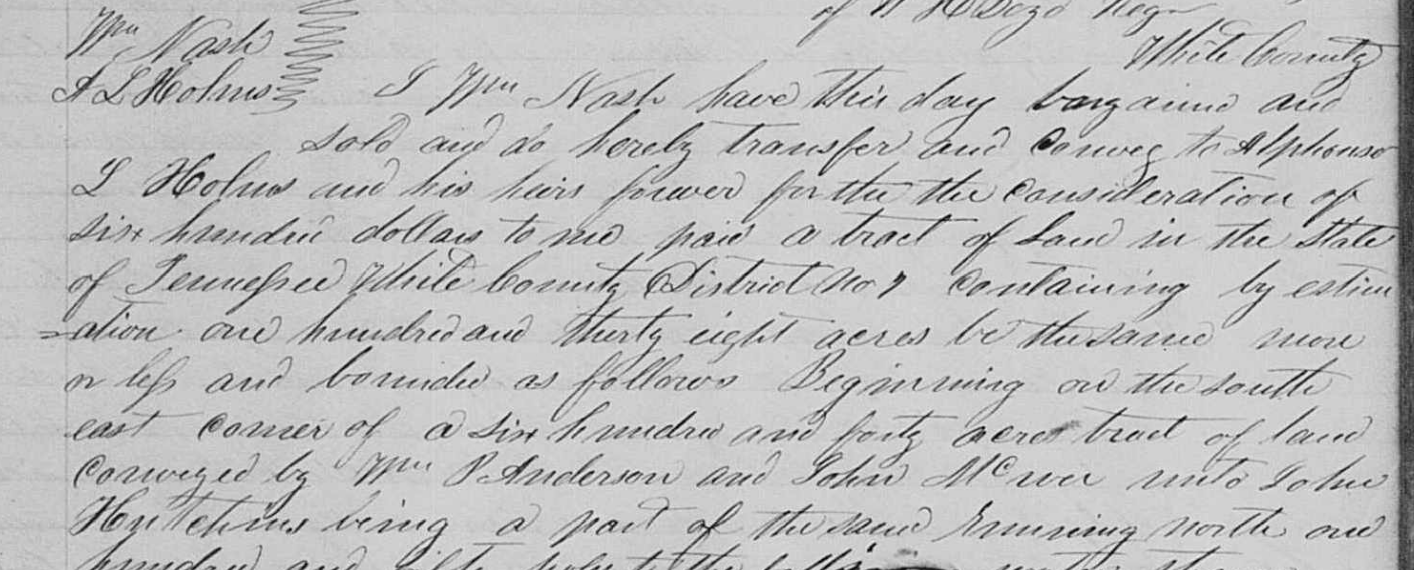 of W H Dozd Regr
Wm Nash White County
A L Holms I Wm Nash have this day bargaind and
sold and do hereby transfer and Convey to Alphonso
L Holms and his heirs forever for the the Consideration of
six hundred dollars to me paid a tract of Land in the State
of Tennessee White County District No 7 Containing by estim
=ation one hundred and thirty eight acres be the same more
or less and bounded as follows Beginning on the south
east corner of a six hundred and forty acres tract of land
Conveyed by Wm P Anderson and John McIver unto John
Hutchins being a part of the same running north one
hundred and poles to the